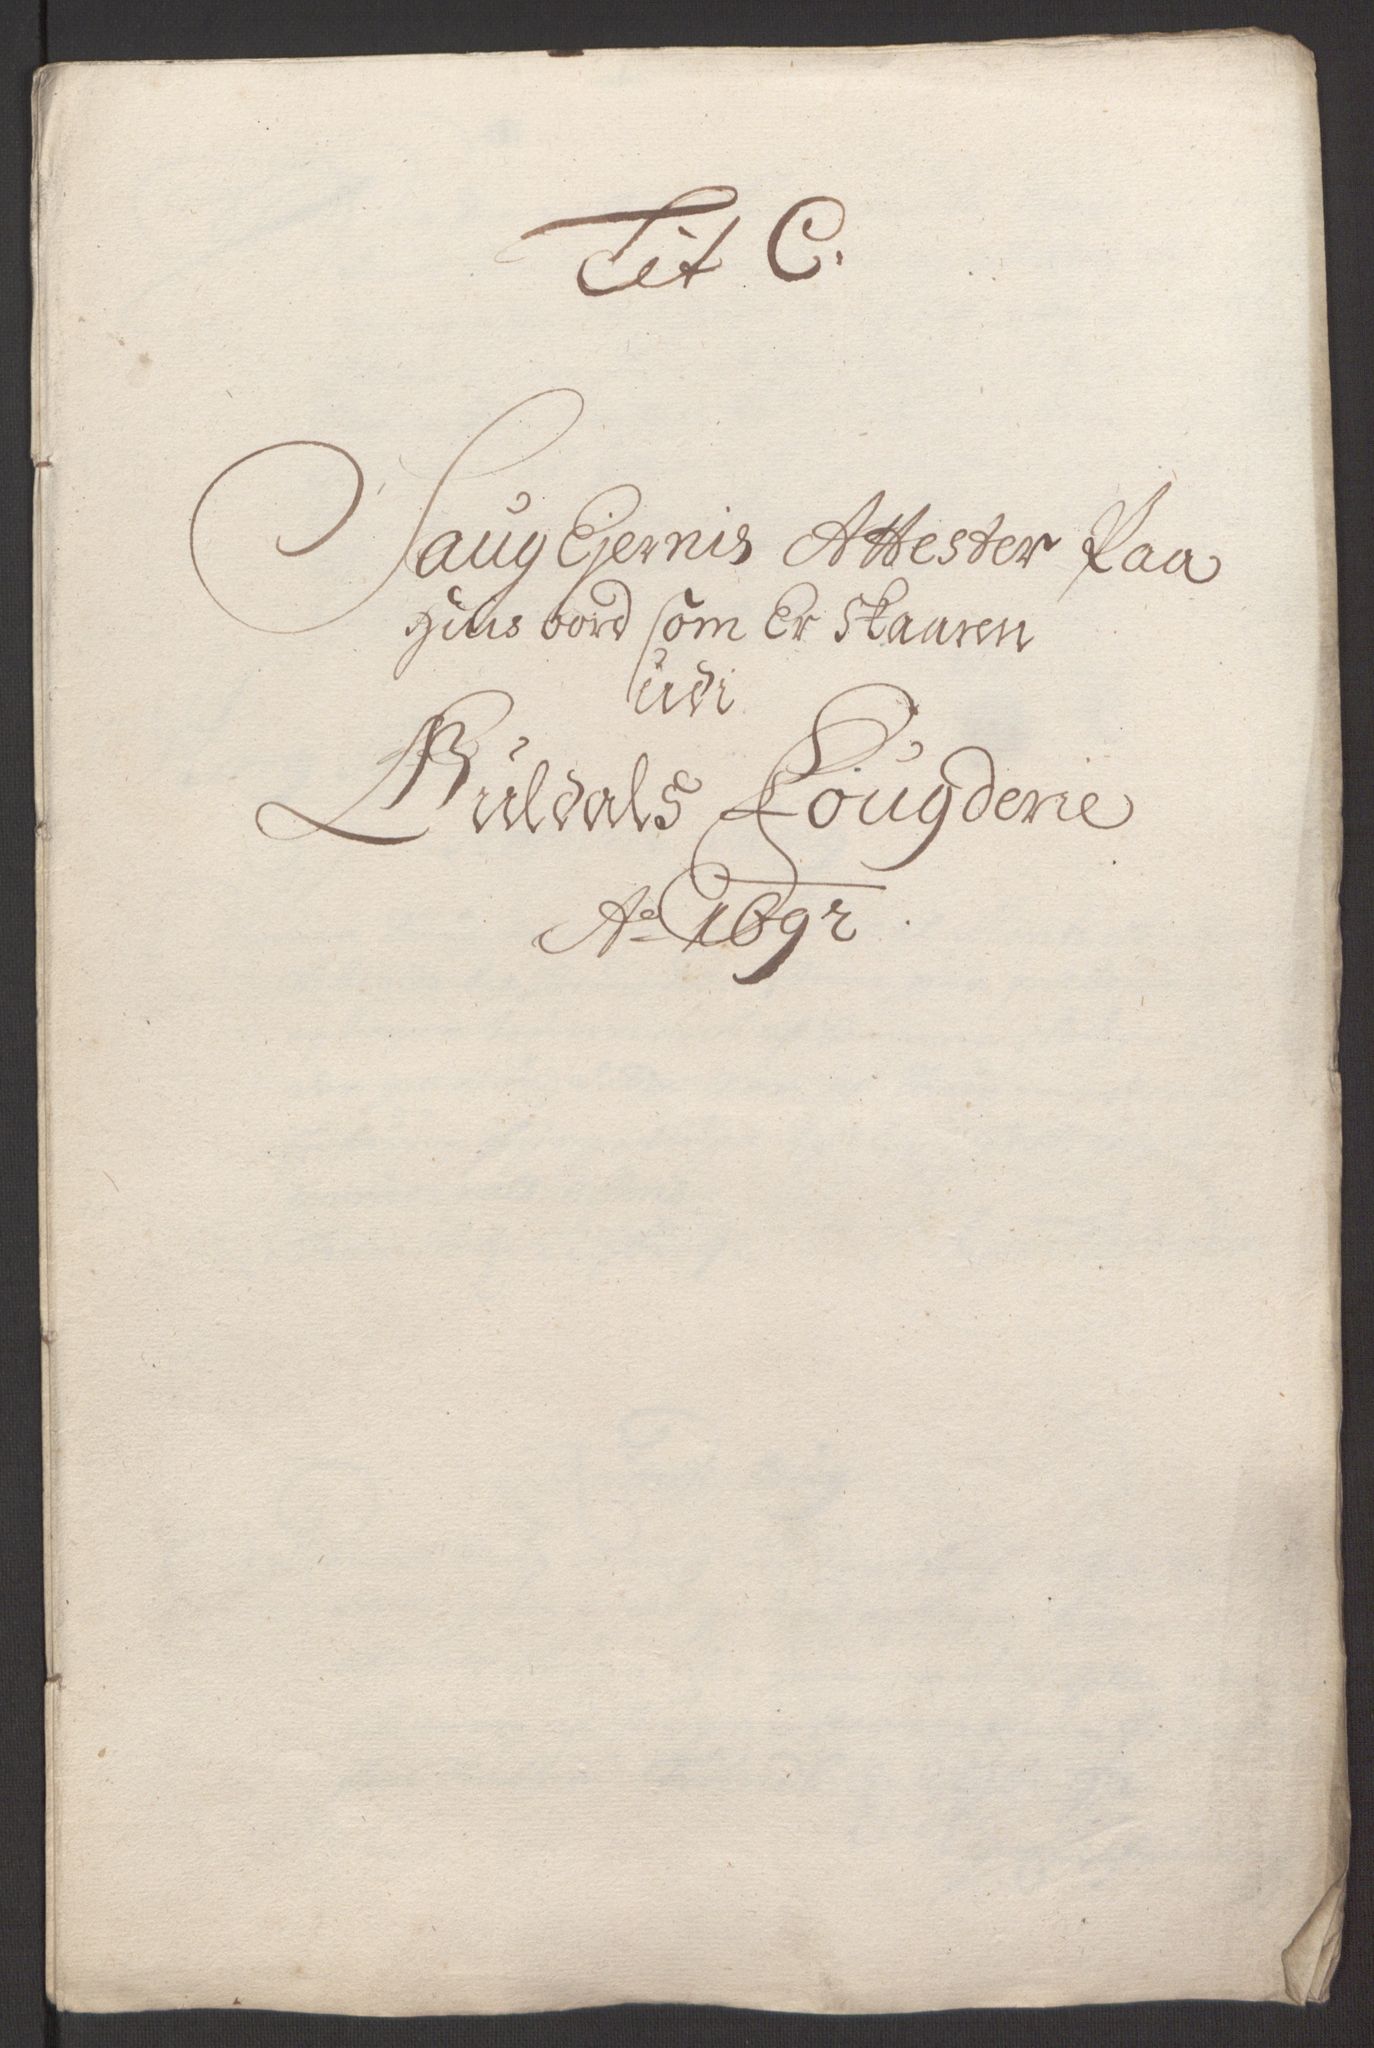 Lit C.
Saug Ejernis Attester Paa
Huus bord som Er Skaaren
udi
Guldals Fougderie
Ao 1692